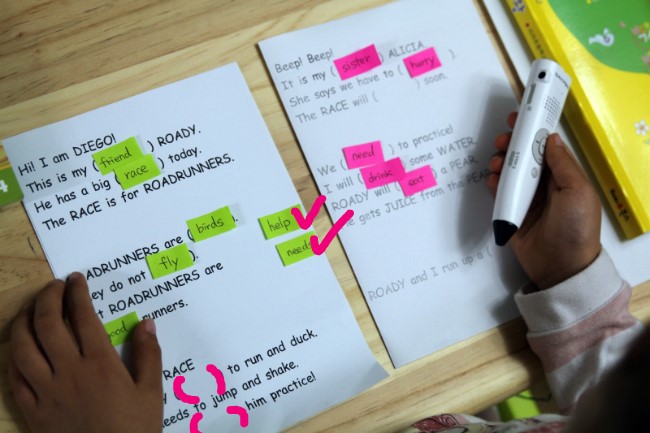 Hi! I am DIEGO!
This is my ( friend ) ROADY.
He has a big ( race ) today.
The RACE is for ROADRUNNERS.
ADRUNNERS are ( birds ).
ey do not ( fly ).
t ROADRUNNERS are
runners.
help
needs
RACE
to run and duck.
eeds to jump and shake.
him practice!
Beep! Beep!
It is my ( sister ) ALICIA.
She says we have to ( hurry ).
The RACE will ( ) soon.
We ( need ) to practice!
I will ( drink ) some WATER.
ROADY will ( eat ) a PEAR.
e gets JUICE from the PEAR.
ROADY and I run up a (